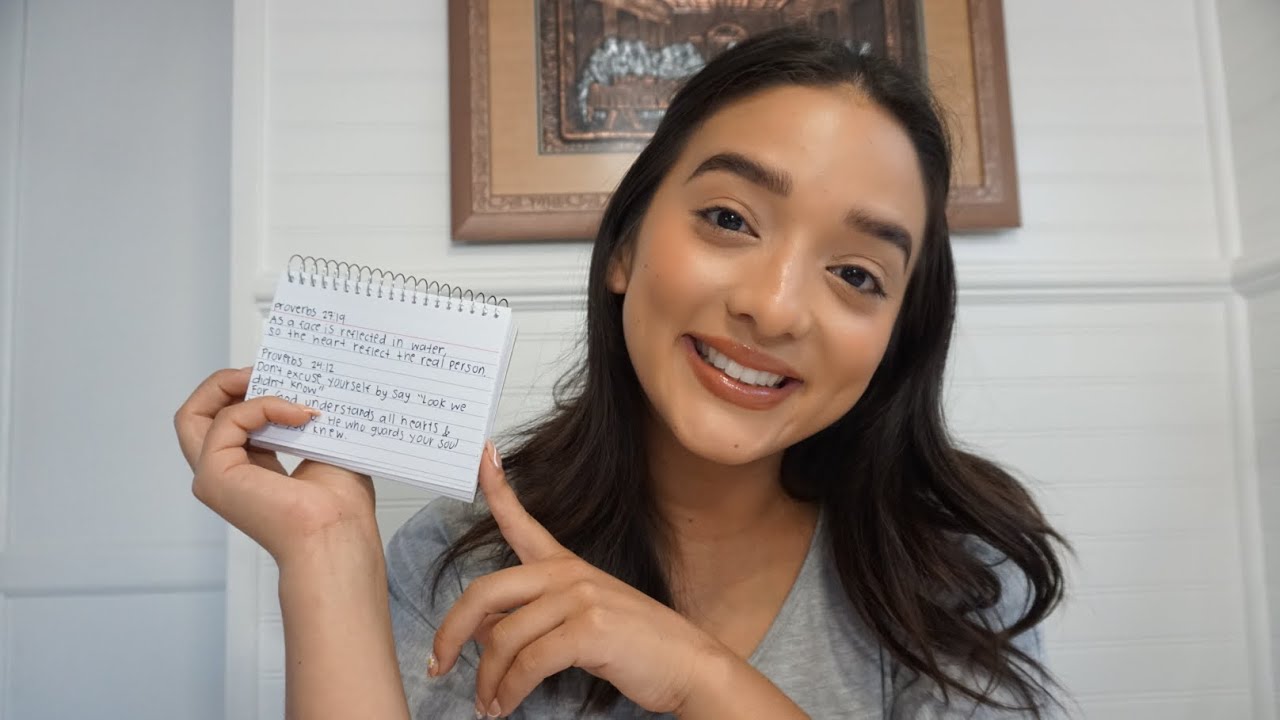 Proverbs 27:19
As a face is reflected in water,
so the heart reflect the real person.
Proverbs 24:12
Don't excuse yourself by say "Look we
didn't know"
For God understands all hearts &
He who guards your soul
knew.